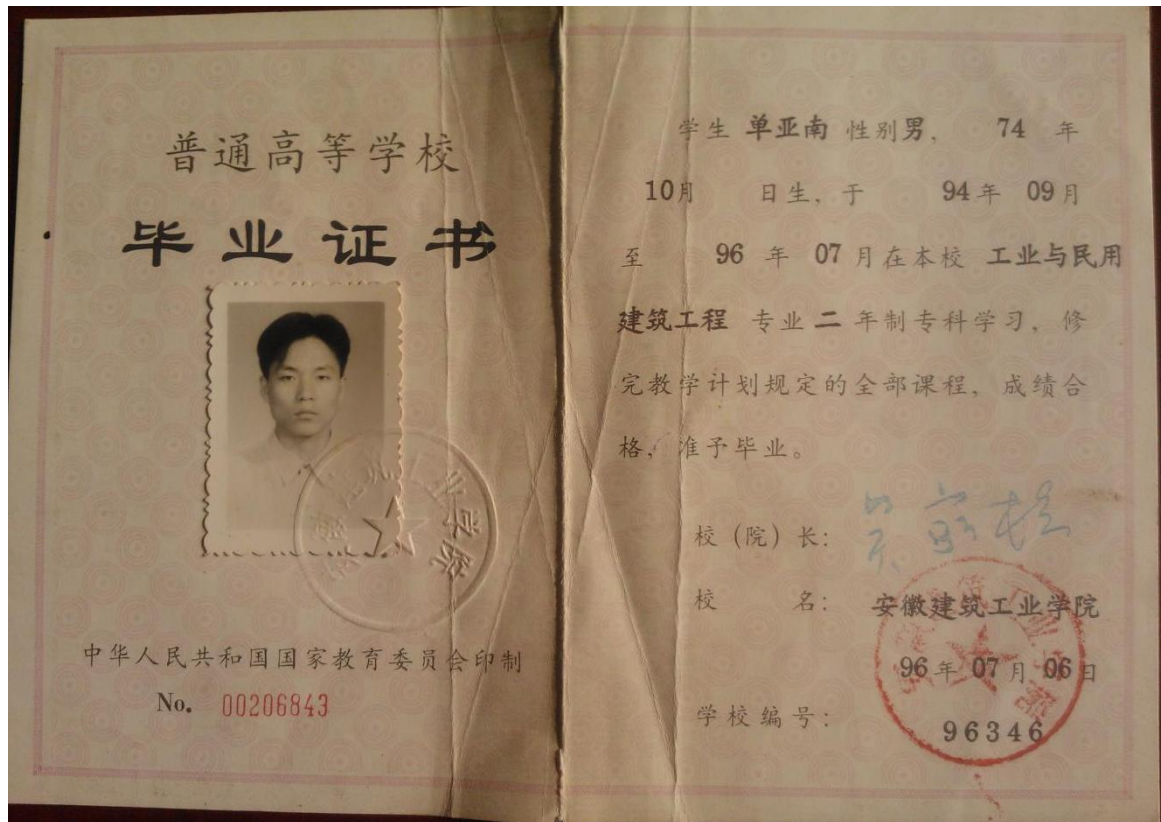 普通高等学校
毕业证书
中华人民共和国国家教育委员会印制
No. 00206843
学生 单亚南 性别男, 74 年
10月 日生, 于 94年 09月
至 96 年 07 月在本校 工业与民用
建筑工程 专业 二 年制专科学习, 修
完教学计划规定的全部课程, 成绩合
格, 准予毕业。
校(院)长:
校 名: 安徽建筑工业学院
96年 07月 06日
学校编号: 96346
安徽建筑工业学院